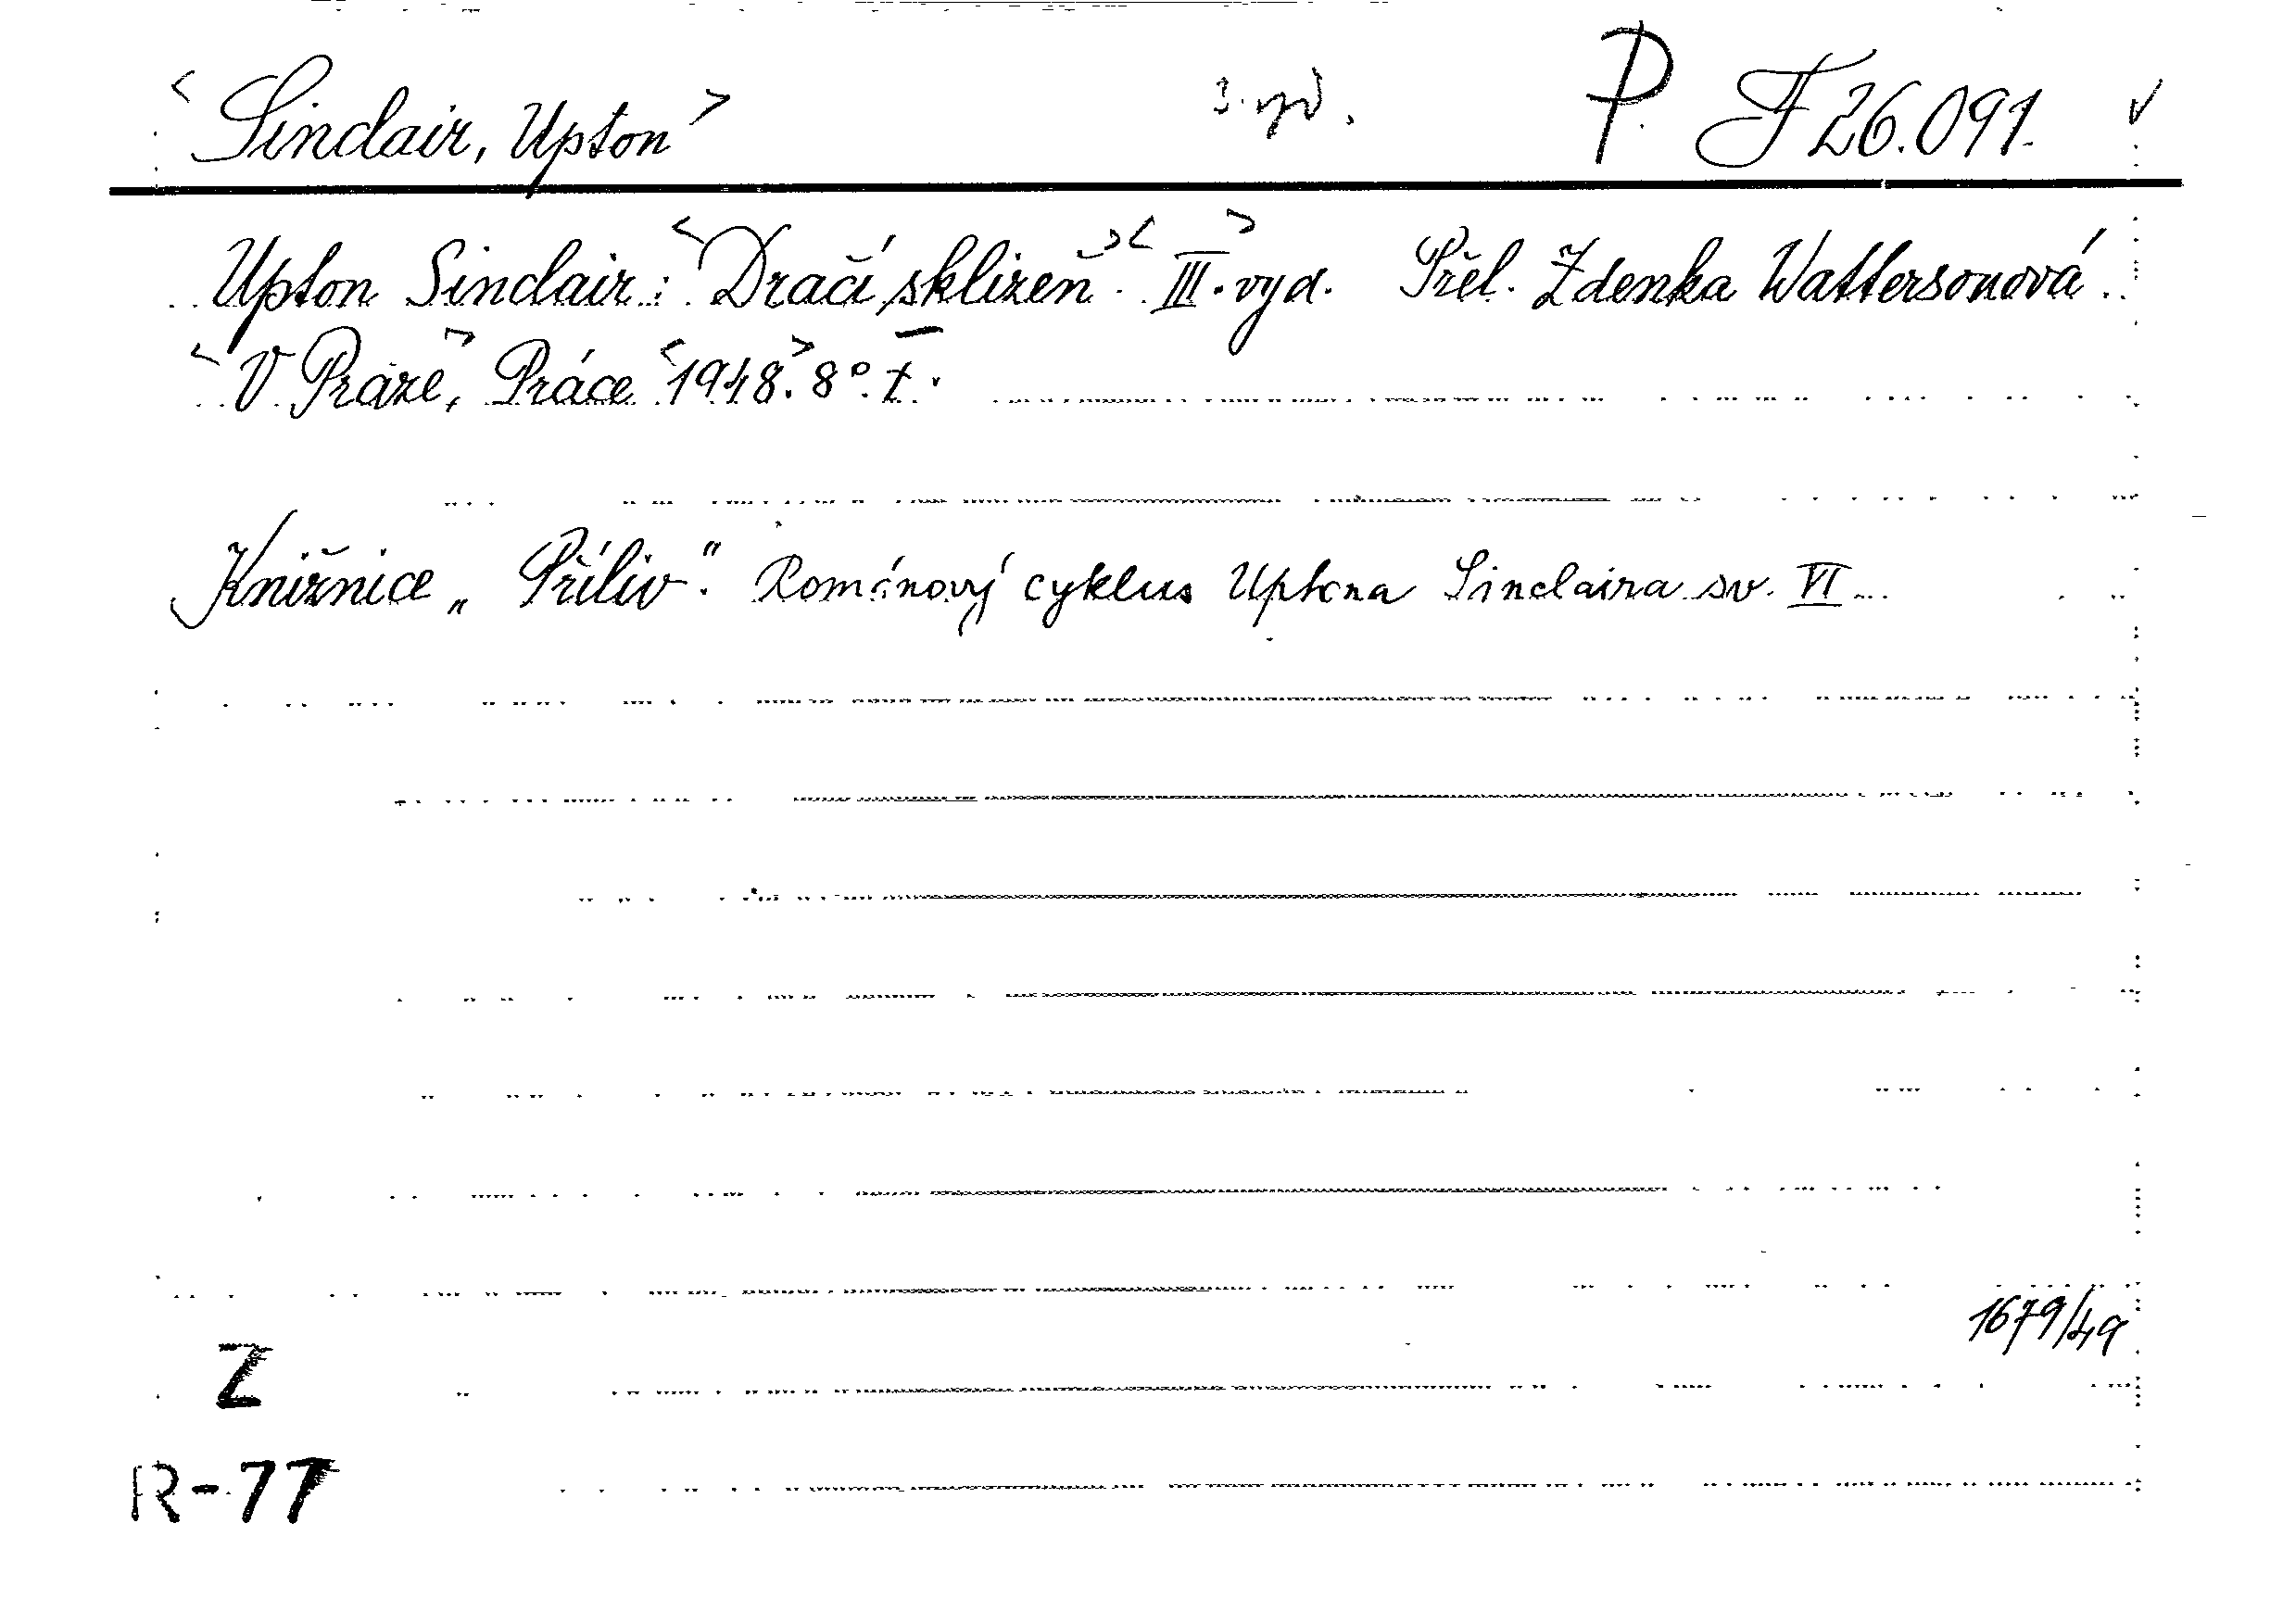 <Sinclair, Upton> 3. vyd. P. F 26.091. ✓
Upton Sinclair: <Dračí sklizeň> <III. vyd.> Přel. Zdenka Wattersonová.
<V Praze>, Práce <1948>. 8°.
Knižnice „Příliv“. Románový cyklus Uptona Sinclaira sv. VI
1679/49
Z
R-77